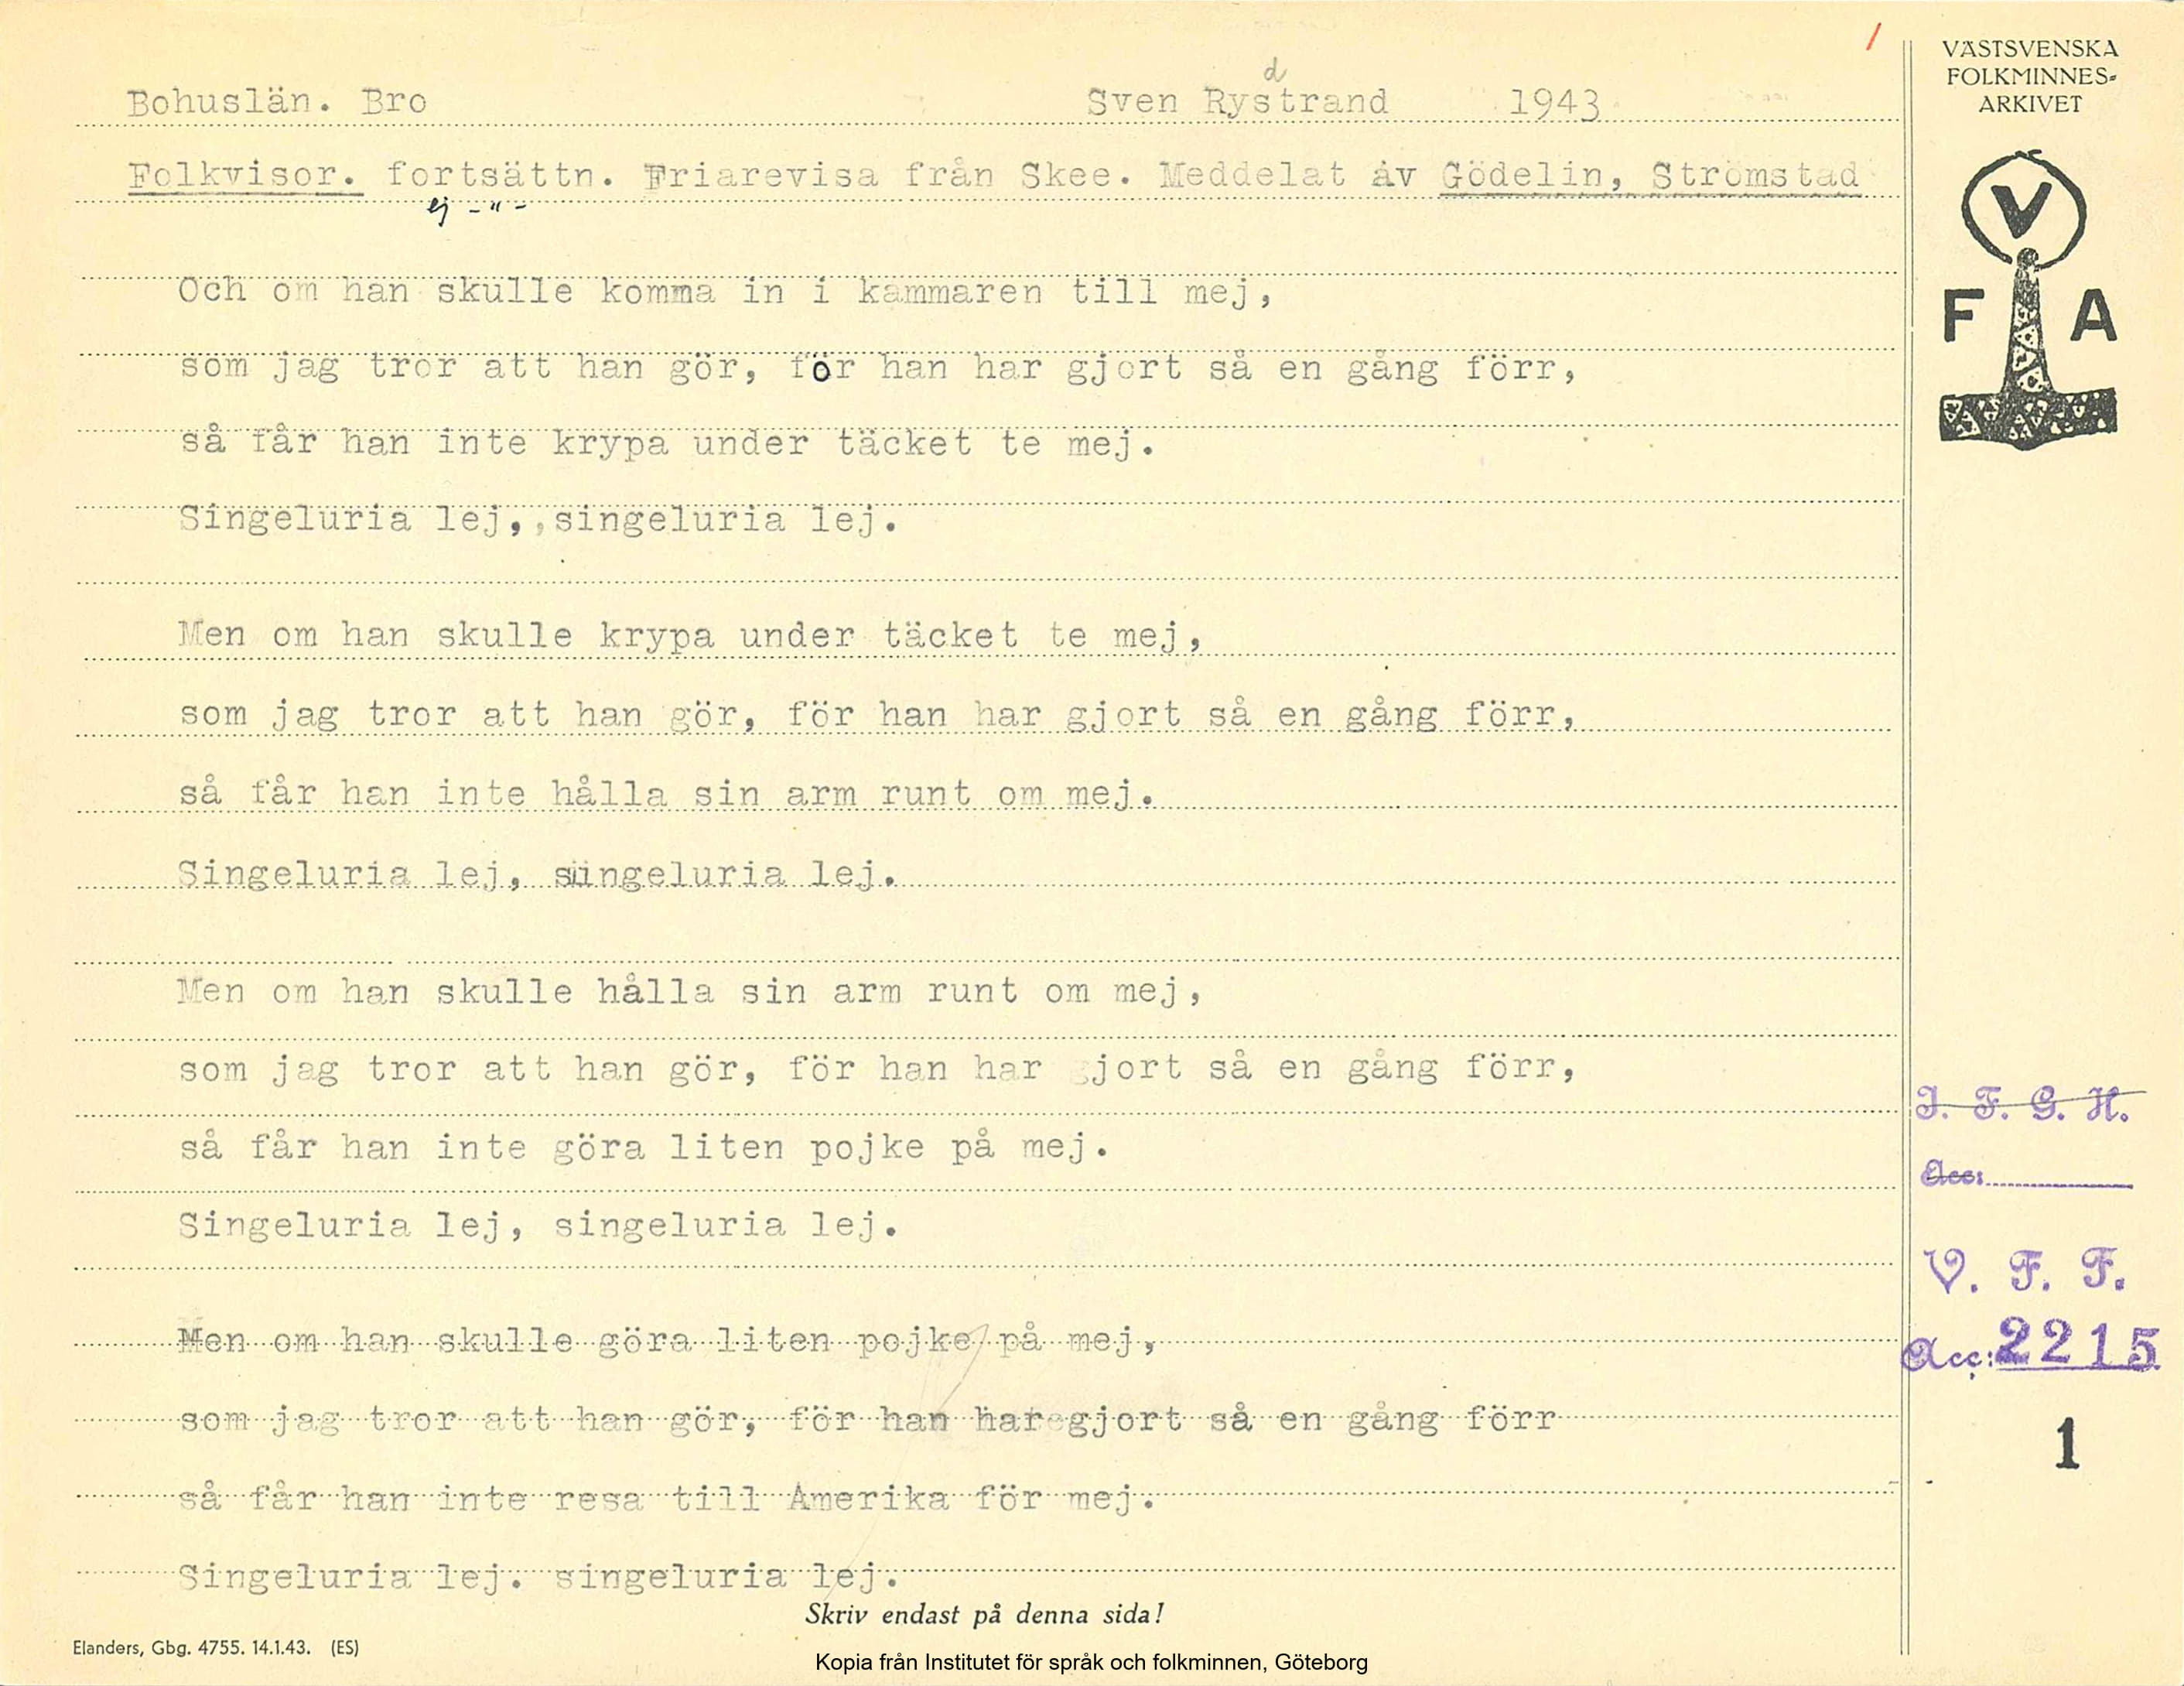 /
Bohuslän. Bro Sven Rystrand 1943
d
Folkvisor. fortsättn. Friarevisa från Skee. Meddelat av Gödelin, Strömstad
ej - " -
Och om han skulle komma in i kammaren till mej,
som jag tror att han gör, för han har gjort så en gång förr,
så får han inte krypa under täcket te mej.
Singeluria lej, ,singeluria lej.
Men om han skulle krypa under täcket te mej,
som jag tror att han gör, för han har gjort så en gång förr,
så får han inte hålla sin arm runt om mej.
Singeluria lej, singeluria lej.
Men om han skulle hålla sin arm runt om mej,
som jag tror att han gör, för han har gjort så en gång förr,
så får han inte göra liten pojke på mej.
Singeluria lej, singeluria lej.
Men om han skulle göra liten pojke på mej,
som jag tror att han gör, för han har gjort så en gång förr
så får han inte resa till Amerika för mej.
Singeluria lej. singeluria lej.
Skriv endast på denna sida!
Elanders, Gbg. 4755. 14.1.43. (ES)
Kopia från Institutet för språk och folkminnen, Göteborg
VÄSTSVENSKA
FOLKMINNES-
ARKIVET
V
F A
I. F. G. H.
Acc:
V. F. F.
Acc: 2215
1